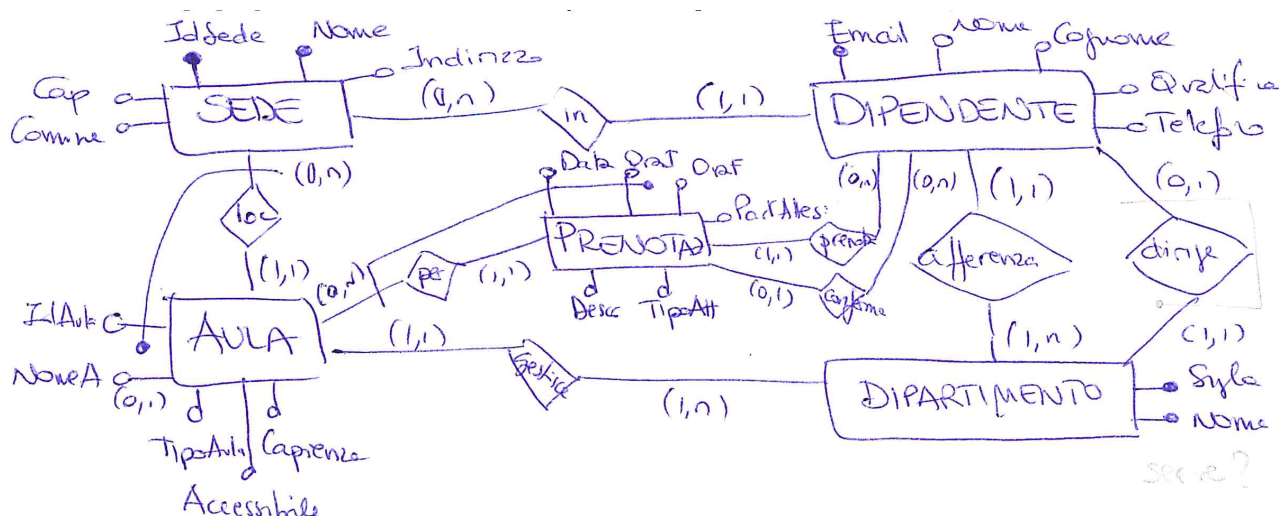 IdSede Nome
Indirizzo
Cap
Comune
SEDE
(0,n)
in
(1,1)
Email Nome Cognome
Qualifica
Telefono
DIPENDENTE
(0,n)
loc
(1,1)
Data OraI OraF
PartAttes
PRENOTAZ
Desc TipoAtt
(0,n)
per
(1,1)
(1,1)
prenota
(0,n)
(0,1)
conferma
(0,n)
(1,1)
afferenza
(1,n)
(0,1)
dirige
(1,1)
IdAula
NomeA
(0,1)
AULA
TipoAula Capienza
Accessibile
(1,1)
Gestisce
(1,n)
DIPARTIMENTO
Sigla
Nome
serve?